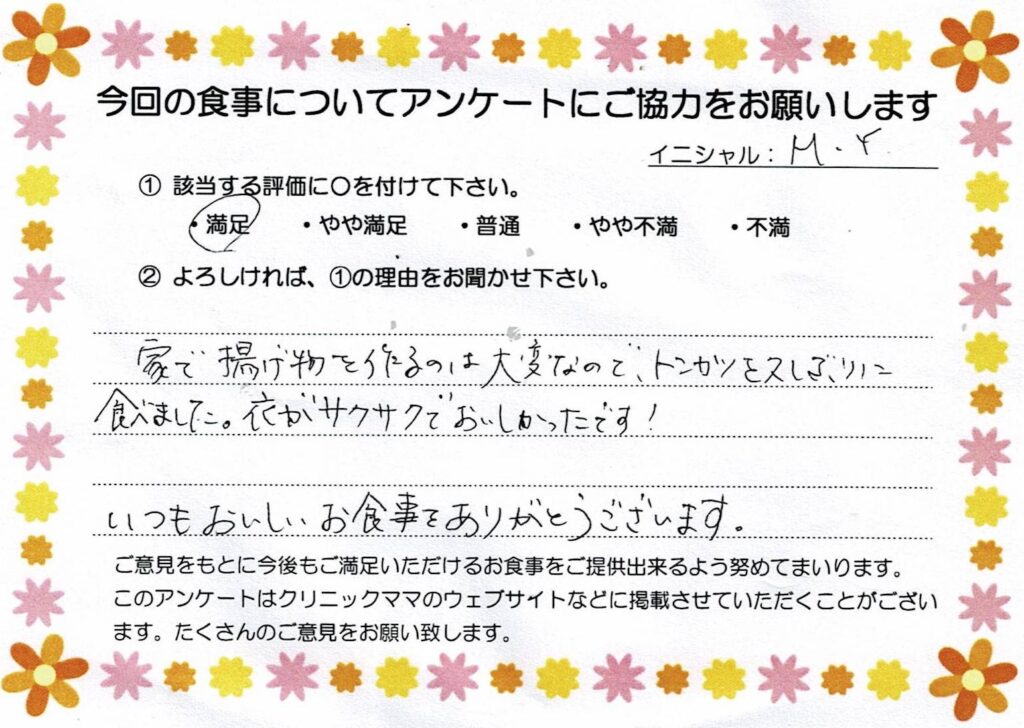 今回の食事についてアンケートにご協力をお願いします
イニシャル：M.Y.
① 該当する評価に〇を付けて下さい。
・満足 ・やや満足 ・普通 ・やや不満 ・不満
② よろしければ、①の理由をお聞かせ下さい。
家で揚げ物を作るのは大変なので、トンカツを久しぶりに
食べました。衣がサクサクでおいしかったです!
いつもおいしいお食事をありがとうございます。
ご意見をもとに今後もご満足いただけるお食事をご提供出来るよう努めてまいります。
このアンケートはクリニックママのウェブサイトなどに掲載させていただくことがござい
ます。たくさんのご意見をお願い致します。